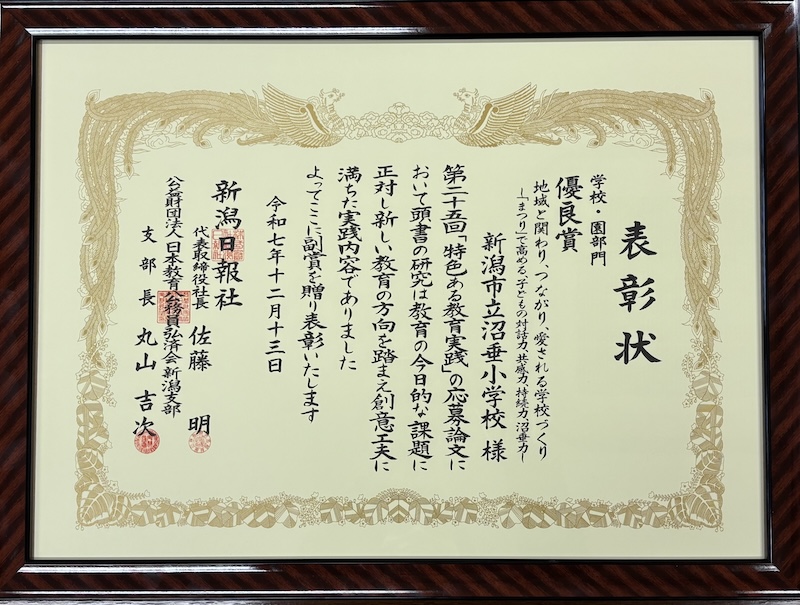 表彰状
学校・園部門
優良賞
地域と関わり、つながり、愛される学校づくり
―「まつり」で高める、子どもの対話力、共感力、持続力、沼垂力―
新潟市立沼垂小学校 様
第二十五回「特色ある教育実践」の応募論文に
おいて頭書の研究は教育の今日的な課題に
正対し新しい教育の方向を踏まえ創意工夫に
満ちた実践内容でありました
よってここに副賞を贈り表彰いたします
令和七年十二月十三日
新潟日報社
代表取締役社長 佐藤 明
公益財団法人日本教育公務員弘済会新潟支部
支部長 丸山吉次